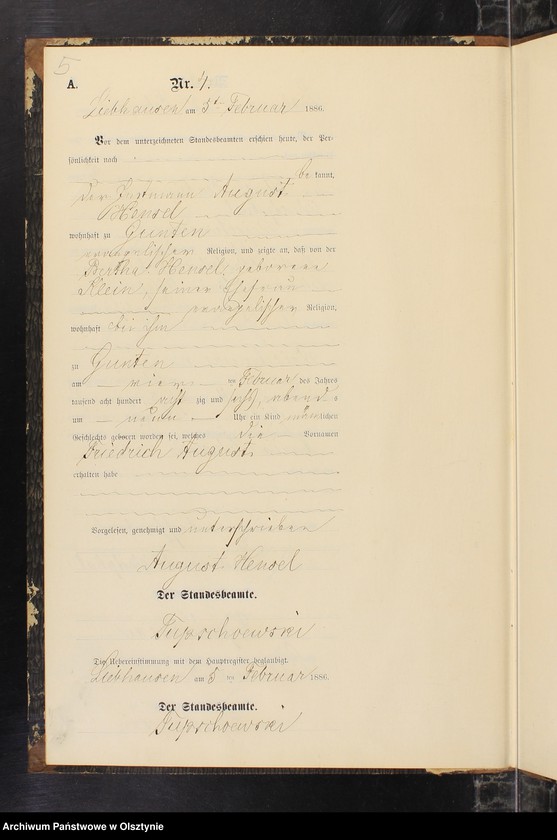 5
A.
Nr. 4.
Liebhausen am 5t Februar 1886.
Vor dem unterzeichneten Standesbeamten erschien heute, der Per-
sönlichkeit nach
be kannt,
der Instmann August
Hensel
wohnhaft zu Gunten
evangelischer Religion, und zeigte an, daß von der
Bertha Hensel geborene
Klein, seiner Ehefrau
evangelischer Religion,
wohnhaft bei ihm
zu Gunten
am vierten Februar des Jahres
tausend acht hundert acht zig und sechs, abends
um neun Uhr ein Kind männlichen
Geschlechts geboren worden sei, welches die Vornamen
Friedrich August
erhalten habe
Vorgelesen, genehmigt und unterschrieben
August Hensel
Der Standesbeamte.
Die Uebereinstimmung mit dem Hauptregister beglaubigt.
Liebhausen am 5ten Februar 1886.
Der Standesbeamte.
Archiwum Państwowe w Olsztynie